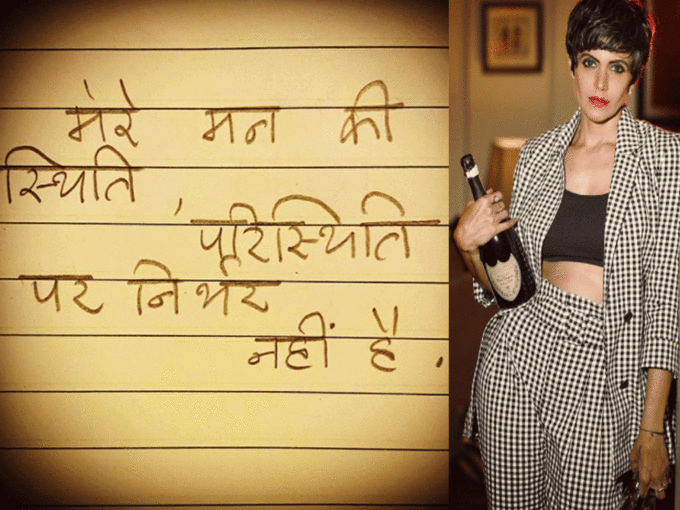 मेरे मन की
स्थिति
'परिस्थिति
पर निर्भर
नहीं है.